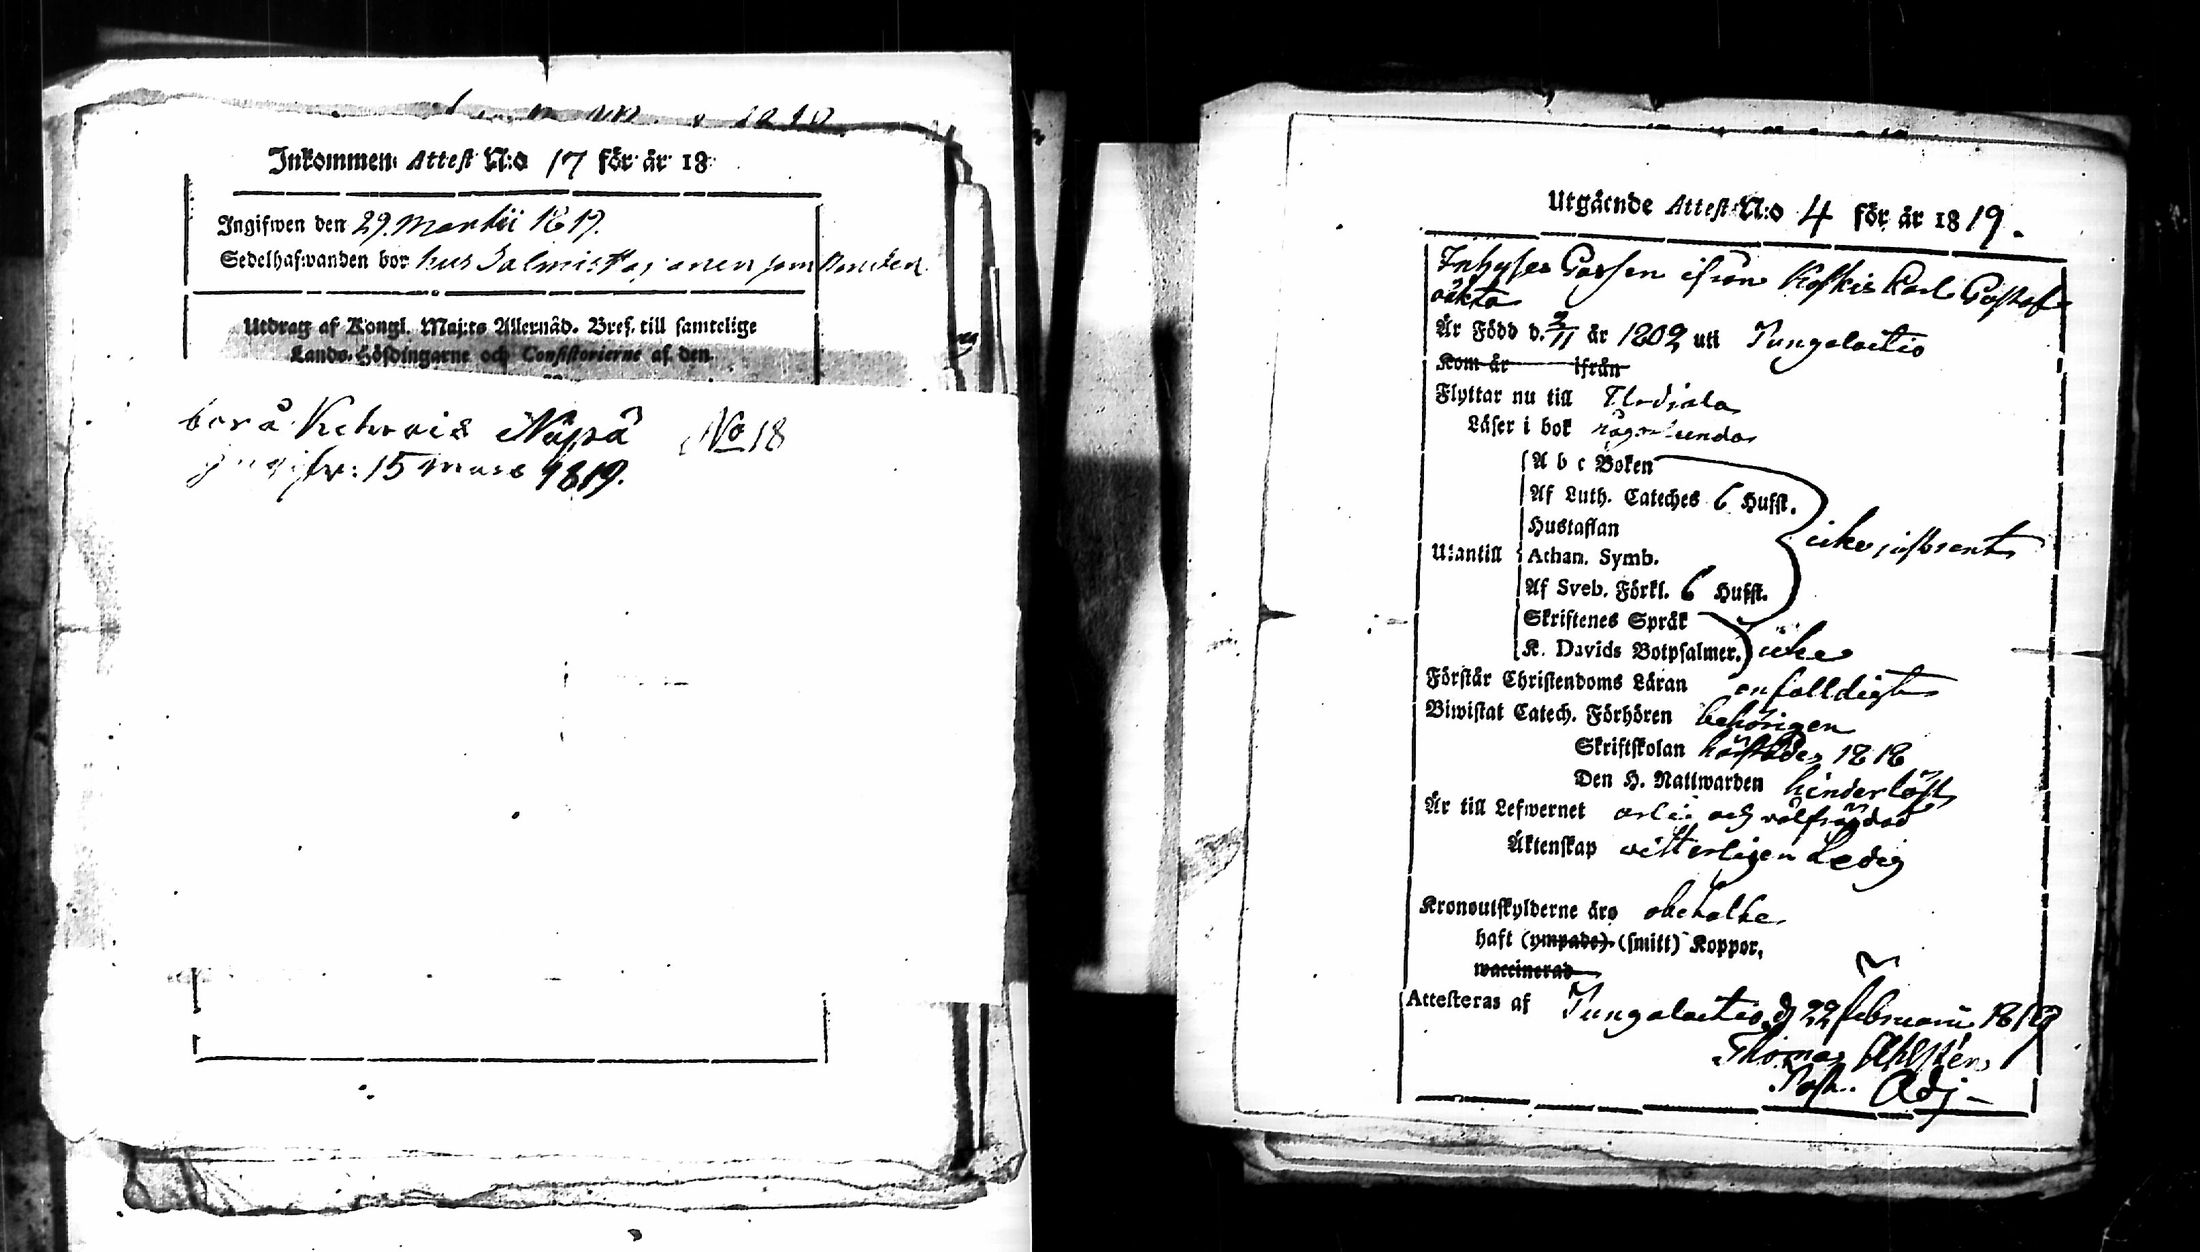 Inkommen Attest N:o 17 för år 18
Ingifwen den 29 Martii 1819.
Sedelhafwanden bor hus Salmis
Utdrag af Kongl. Maj:ts Allernåd. Bref till samtelige
Lands-Höfdingarne och Consistorierne af den
bor å Kehrois Näpä No 18
Ingifv: 15 mars 1819.
Utgående Attest N:o 4 för år 1819.
Inhyses Gossen ifrån Koskis Karl Gustaf
äkta
Är Född d. 2/11 år 1802 uti Pungalaitio
Kom år ifrån
Flyttar nu till Flodjala
Läser i bok någorlunda
A b c Boken
Af Luth. Cateches 6 Hufst.
Hustaflan
Utantill Athan. Symb.
Af Sveb. Förkl. 6 Hufst.
Skriftenes Språk
K. Davids Botpsalmer.
icke
Förstår Christendoms Läran enfalldigt
Biwistat Catech. Förhören behörigen
Skriftskolan 1818
Den H. Nattwarden hinderlöst
Är till Lefwernet ärlig och välfrägdad
Äktenskap vitterligen Ledig
Kronoutskylderne äro obetalte
haft (ympade) (smitt) Koppor,
waccinerad
Attesteras af Pungalaitio d 22 februarii 1819
Thomas Ahlstén
Past. Adj